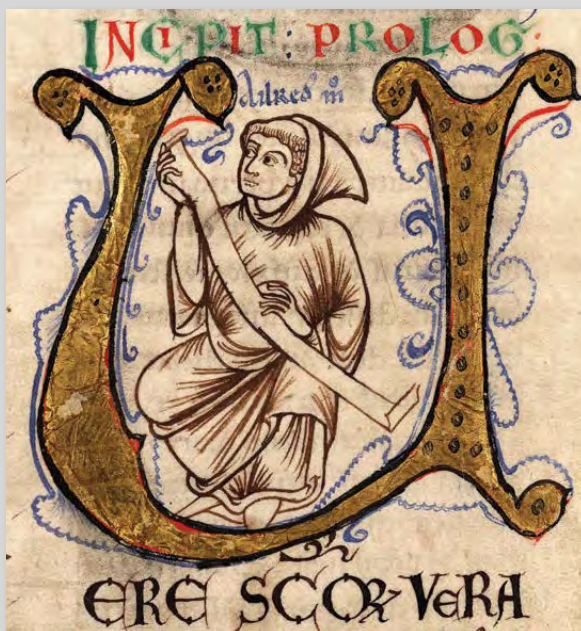 INCIPIT : PROLOG :
ailred
U
ERE SCOꝝ VERA